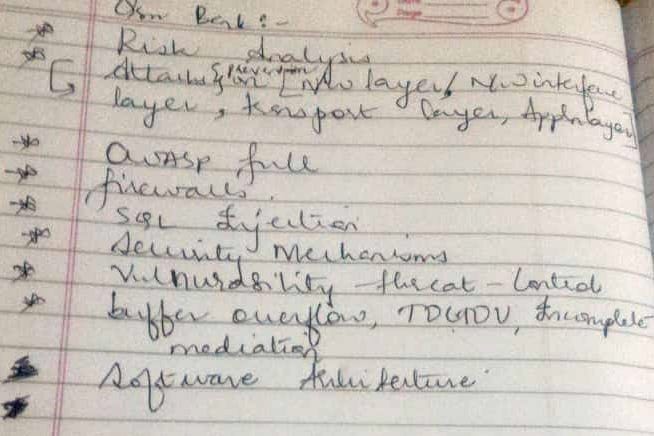 Qsn Bank :-
Risk Analysis
Attacks & prevention [N/w layer/ N/w interface
layer, Transport layer, Appln layer]
OWASP full
firewalls.
SQL Injection
Security Mechanisms
Vulnurability - threat - Control
buffer overflow, TOCTOU, Incomplete
mediation
Software Architecture